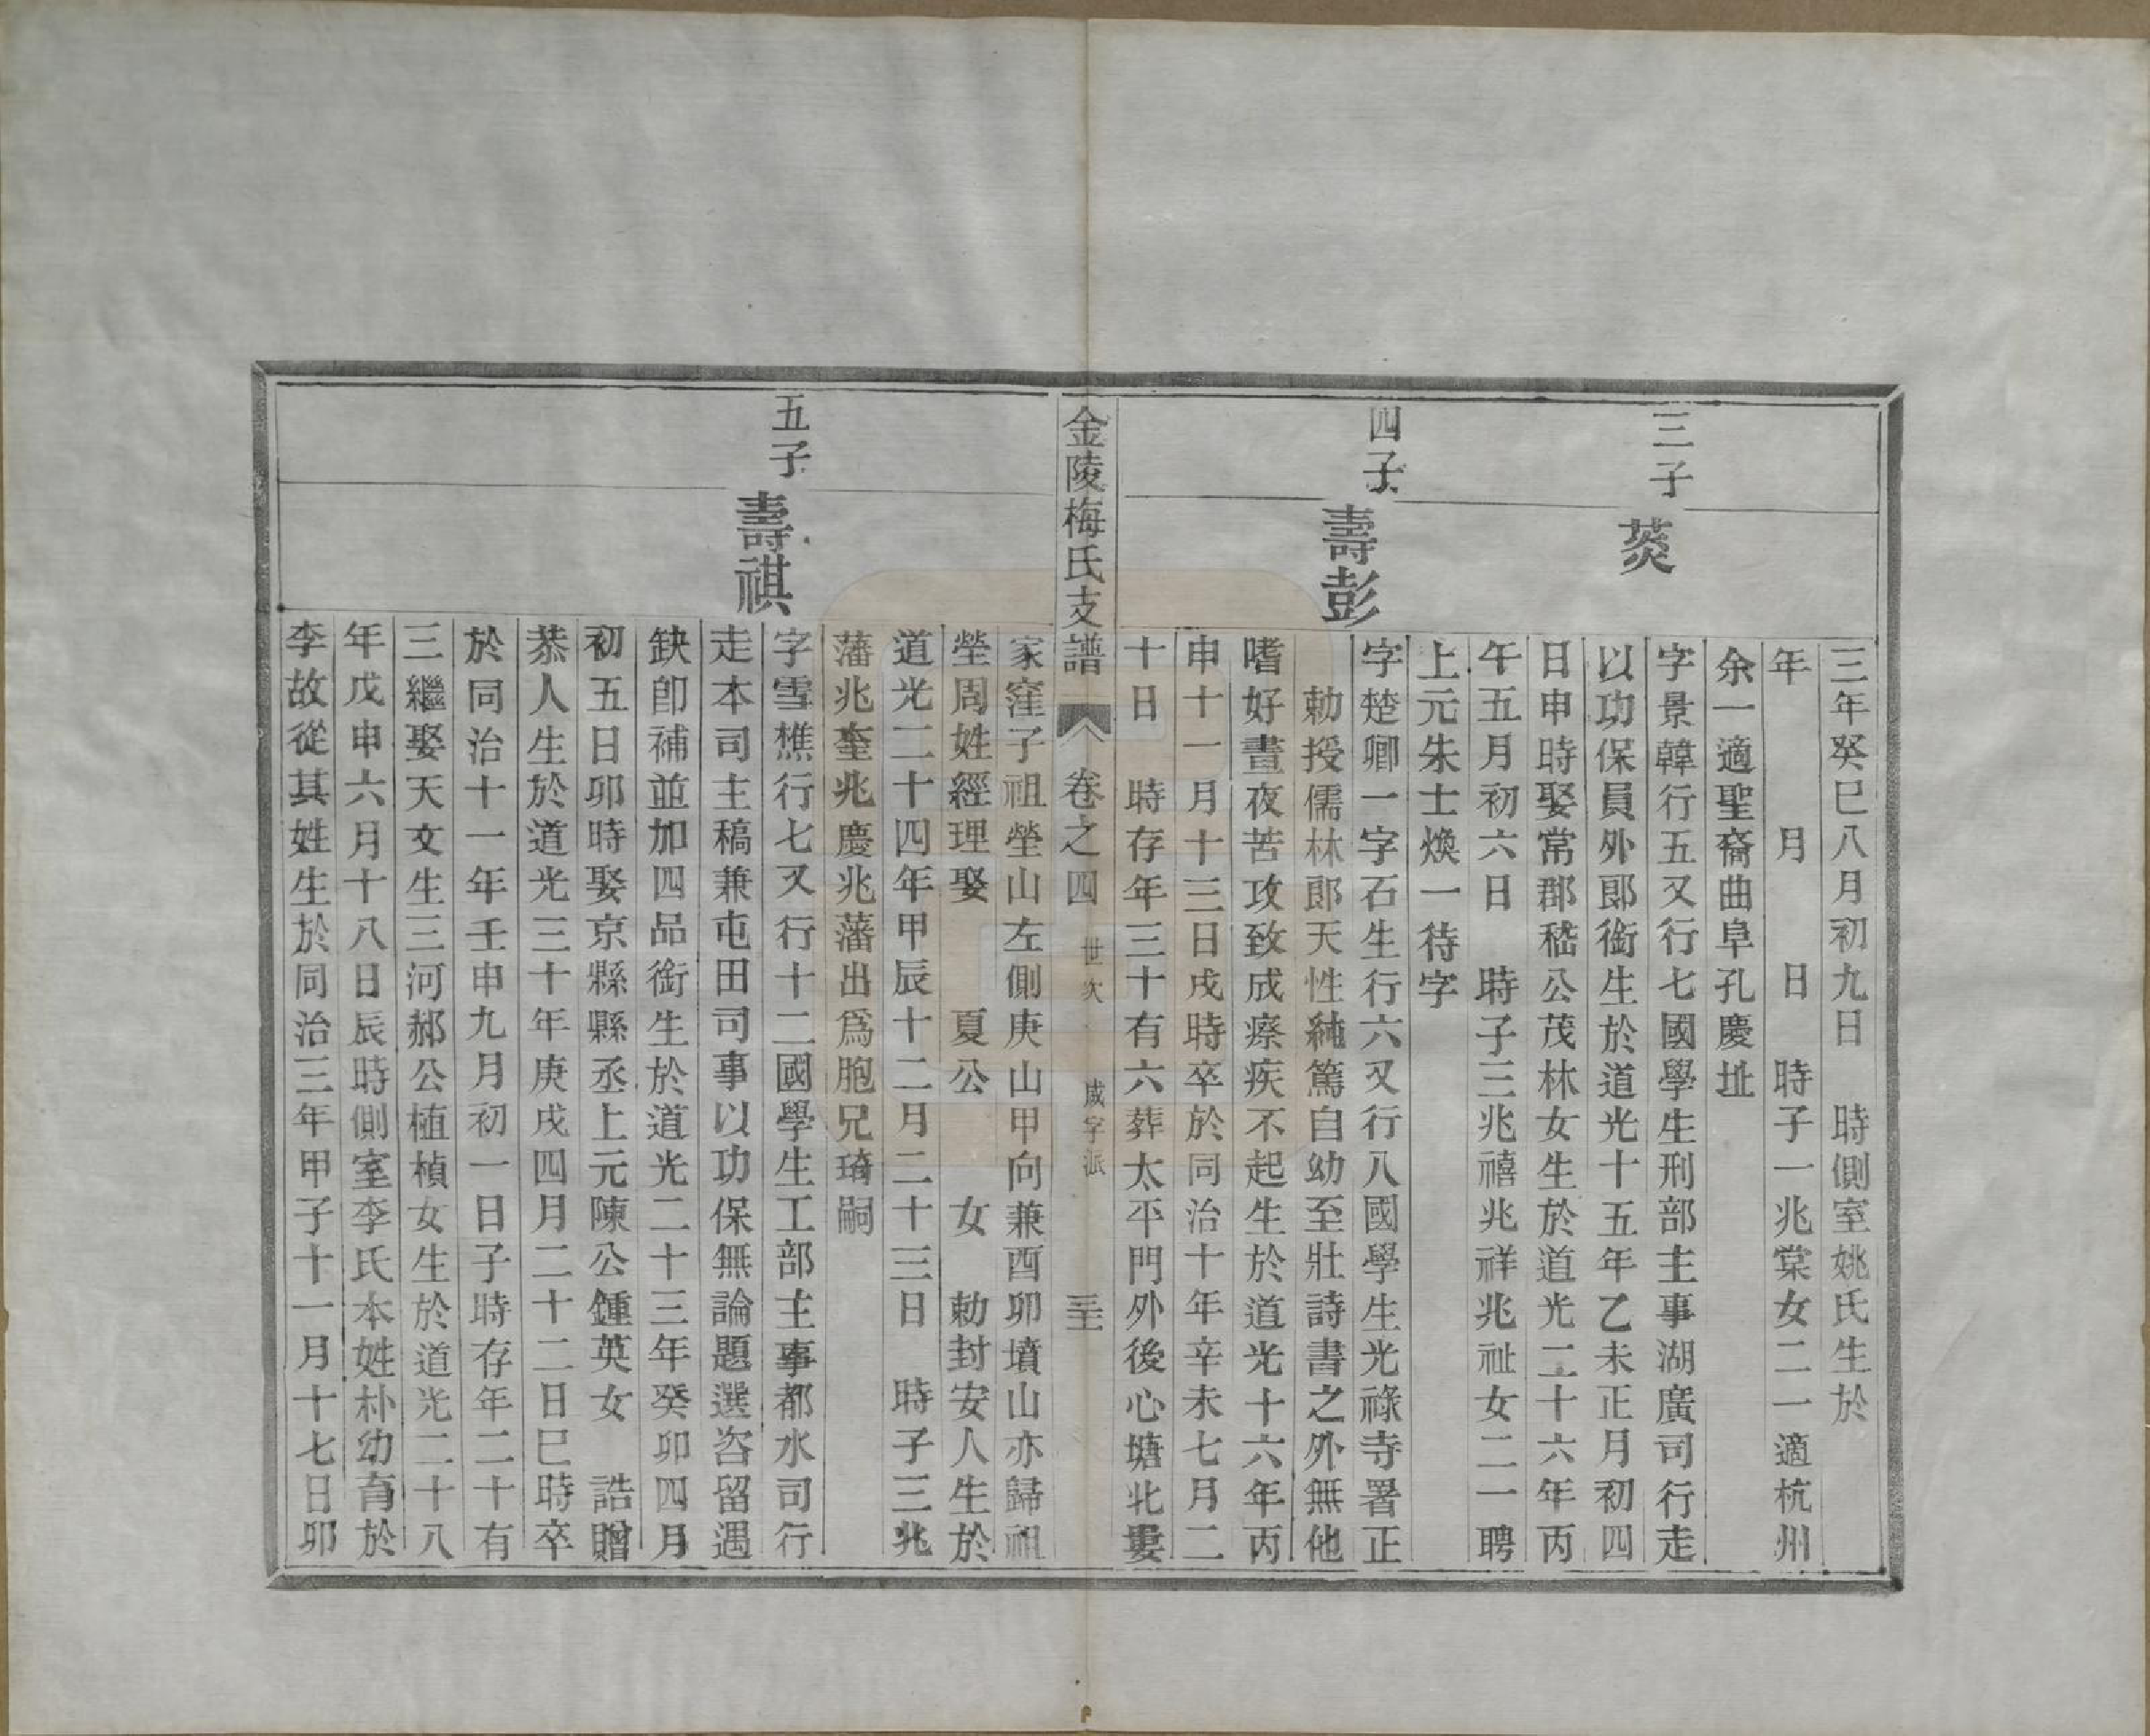 三年癸巳八月初九日　時側室姚氏生於
年　　月　　日　時子一兆棠女二一適杭州
余一適聖裔曲阜孔慶址
三子
葵
字景韓行五又行七國學生刑部主事湖廣司行走
以功保員外郎銜生於道光十五年乙未正月初四
日申時娶常郡嵇公茂林女生於道光二十六年丙
午五月初六日　時子三兆禧兆祥兆祉女二一聘
上元朱士煥一待字
四子
壽彭
字楚卿一字石生行六又行八國學生光祿寺署正
勅授儒林郎天性純篤自幼至壯詩書之外無他
嗜好晝夜苦攻致成瘵疾不起生於道光十六年丙
申十一月十三日戌時卒於同治十年辛未七月二
十日　時存年三十有六葬太平門外後心塘北婁
金陵梅氏支譜　卷之四　世次　咸字派　三至
家窪子祖塋山左側庚山甲向兼酉卯墳山亦歸祖
塋周姓經理娶　　夏公　　女　勅封安人生於
道光二十四年甲辰十二月二十三日　時子三兆
藩兆奎兆慶兆藩出爲胞兄琦嗣
五子
壽祺
字雪樵行七又行十二國學生工部主事都水司行
走本司主稿兼屯田司事以功保無論題選咨留遇
缺卽補並加四品銜生於道光二十三年癸卯四月
初五日卯時娶京縣縣丞上元陳公鍾英女　誥贈
恭人生於道光三十年庚戌四月二十二日巳時卒
於同治十一年壬申九月初一日子時存年二十有
三繼娶天文生三河郝公植楨女生於道光二十八
年戊申六月十八日辰時側室李氏本姓朴幼育於
李故從其姓生於同治三年甲子十一月十七日卯